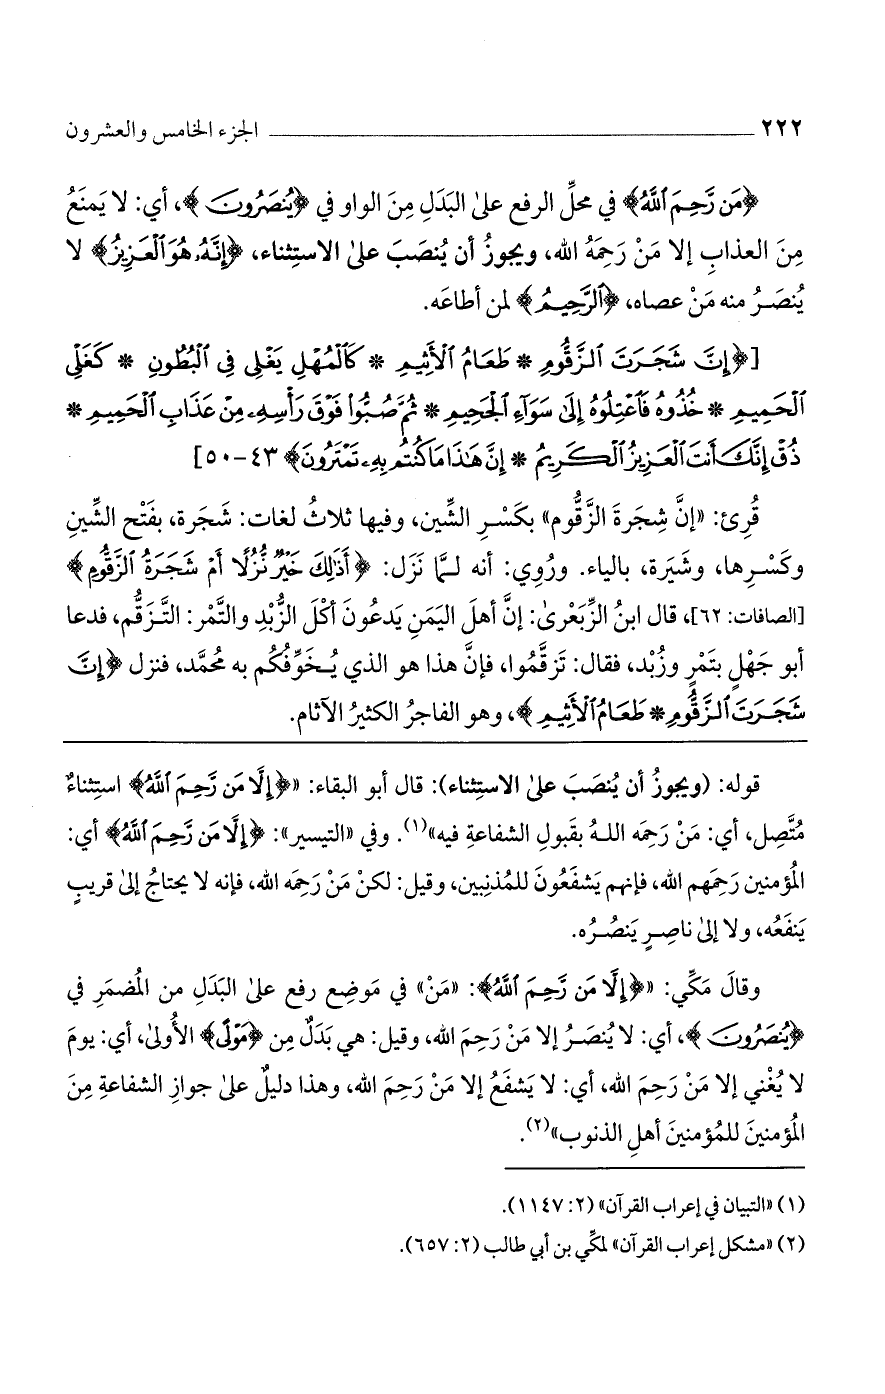 ٢٢٢ ــــــــــــــــــــ الجزء الخامس والعشرون
﴿مَن رَّحِمَ ٱللَّهُ﴾ في محلِّ الرفع علىٰ البَدَلِ مِنَ الواو في ﴿يُنصَرُونَ﴾، أي: لا يَمنَعُ
مِنَ العذابِ إلا مَنْ رَحِمَهُ الله، ويجوزُ أن يُنصَبَ علىٰ الاستِثناء، ﴿إِنَّهُۥ هُوَ ٱلْعَزِيزُ﴾ لا
يُنصَـرُ منه مَنْ عصاه، ﴿ٱلرَّحِيمُ﴾ لمن أطاعَه.
[﴿إِنَّ شَجَرَتَ ٱلزَّقُّومِ * طَعَامُ ٱلْأَثِيمِ * كَٱلْمُهْلِ يَغْلِى فِى ٱلْبُطُونِ * كَغَلْىِ
ٱلْحَمِيمِ * خُذُوهُ فَٱعْتِلُوهُ إِلَىٰ سَوَآءِ ٱلْجَحِيمِ * ثُمَّ صُبُّوا۟ فَوْقَ رَأْسِهِۦ مِنْ عَذَابِ ٱلْحَمِيمِ *
ذُقْ إِنَّكَ أَنتَ ٱلْعَزِيزُ ٱلْكَرِيمُ * إِنَّ هَٰذَا مَا كُنتُم بِهِۦ تَمْتَرُونَ﴾ ٤٣-٥٠]
قُرِئ: «إنَّ شِجَرةَ الزَّقُّوم» بكَسْـرِ الشِّين، وفيها ثلاثُ لغات: شَجَرة، بفَتْح الشِّينِ
وكَسْـرِها، وشَيَرة، بالياء. ورُوِي: أنه لـمَّا نَزَل: ﴿أَذَٰلِكَ خَيْرٌ نُّزُلًا أَمْ شَجَرَةُ ٱلزَّقُّومِ﴾
[الصافات: ٦٢]، قال ابنُ الزِّبَعْرىٰ: إنَّ أهلَ اليَمَنِ يَدعُونَ أكْلَ الزُّبْدِ والتَّمْر: التَّـزَقُّم، فدعا
أبو جَهْلٍ بتَمْرٍ وزُبْد، فقال: تَزَقَّمُوا، فإنَّ هذا هو الذي يُـخَوِّفُكُم به محُمَّد، فنزل ﴿إِنَّ
شَجَرَتَ ٱلزَّقُّومِ * طَعَامُ ٱلْأَثِيمِ﴾، وهو الفاجرُ الكثيرُ الآثام.
قوله: (ويجوزُ أن يُنصَبَ علىٰ الاستِثناء): قال أبو البقاء: «﴿إِلَّا مَن رَّحِمَ ٱللَّهُ﴾ استِثناءٌ
مُتَّصِل، أي: مَنْ رَحِمَه اللـهُ بقَبولِ الشفاعةِ فيه»(١). وفي «التيسير»: ﴿إِلَّا مَن رَّحِمَ ٱللَّهُ﴾ أي:
المُؤمنين رَحِمَهم الله، فإنهم يَشفَعُونَ للمُذنِبين، وقيل: لكنْ مَنْ رَحِمَه الله، فإنه لا يحتاجُ إلىٰ قريبٍ
يَنفَعُه، ولا إلىٰ ناصِـرٍ يَنصُـرُه.
وقالَ مَكِّي: «﴿إِلَّا مَن رَّحِمَ ٱللَّهُ﴾: «مَنْ» في مَوضِع رفع علىٰ البَدَلِ من المُضمَرِ في
﴿يُنصَرُونَ﴾، أي: لا يُنصَـرُ إلا مَنْ رَحِمَ الله، وقيل: هي بَدَلٌ مِن ﴿مَوْلًى﴾ الأُولىٰ، أي: يومَ
لا يُغْني إلا مَنْ رَحِمَ الله، أي: لا يَشفَعُ إلا مَنْ رَحِمَ الله، وهذا دليلٌ علىٰ جوازِ الشفاعةِ مِنَ
المُؤمنينَ للمُؤمنينَ أهلِ الذنوب»(٢).
(١) «التبيان في إعراب القرآن» (٢: ١١٤٧).
(٢) «مشكل إعراب القرآن» لمكِّي بن أبي طالب (٢: ٦٥٧).